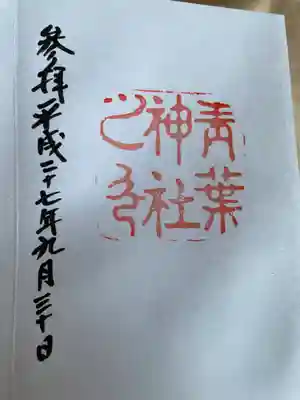 青葉
神社
之印
参拝 平成二十七年九月三十日